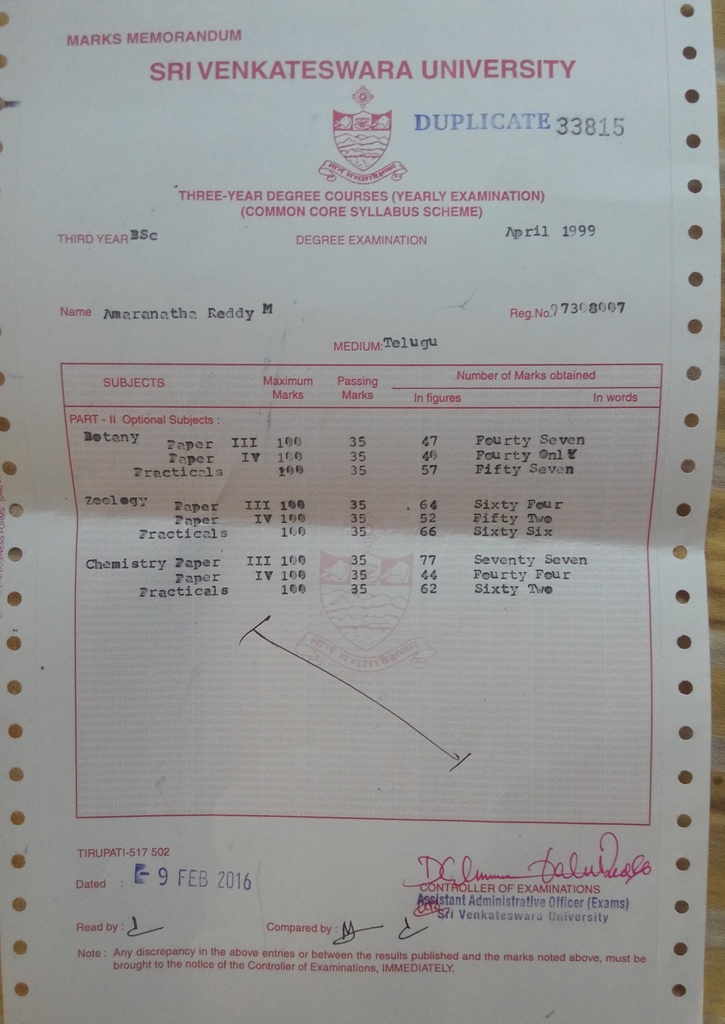 MARKS MEMORANDUM
SRI VENKATESWARA UNIVERSITY
DUPLICATE 33815
THREE-YEAR DEGREE COURSES (YEARLY EXAMINATION)
(COMMON CORE SYLLABUS SCHEME)
THIRD YEAR BSc DEGREE EXAMINATION April 1999
Name Amaranatha Reddy M Reg.No. 97308007
MEDIUM: Telugu
SUBJECTS Maximum Marks Passing Marks Number of Marks obtained
In figures In words
PART - II Optional Subjects :
Botany Paper III 100 35 47 Fourty Seven
Paper IV 100 35 40 Fourty Only
Practicals 100 35 57 Fifty Seven
Zoology Paper III 100 35 64 Sixty Four
Paper IV 100 35 52 Fifty Two
Practicals 100 35 66 Sixty Six
Chemistry Paper III 100 35 77 Seventy Seven
Paper IV 100 35 44 Fourty Four
Practicals 100 35 62 Sixty Two
TIRUPATI-517 502
Dated : - 9 FEB 2016
CONTROLLER OF EXAMINATIONS
Assistant Administrative Officer (Exams)
Sri Venkateswara University
Read by : Compared by :
Note : Any discrepancy in the above entries or between the results published and the marks noted above, must be
brought to the notice of the Controller of Examinations, IMMEDIATELY.